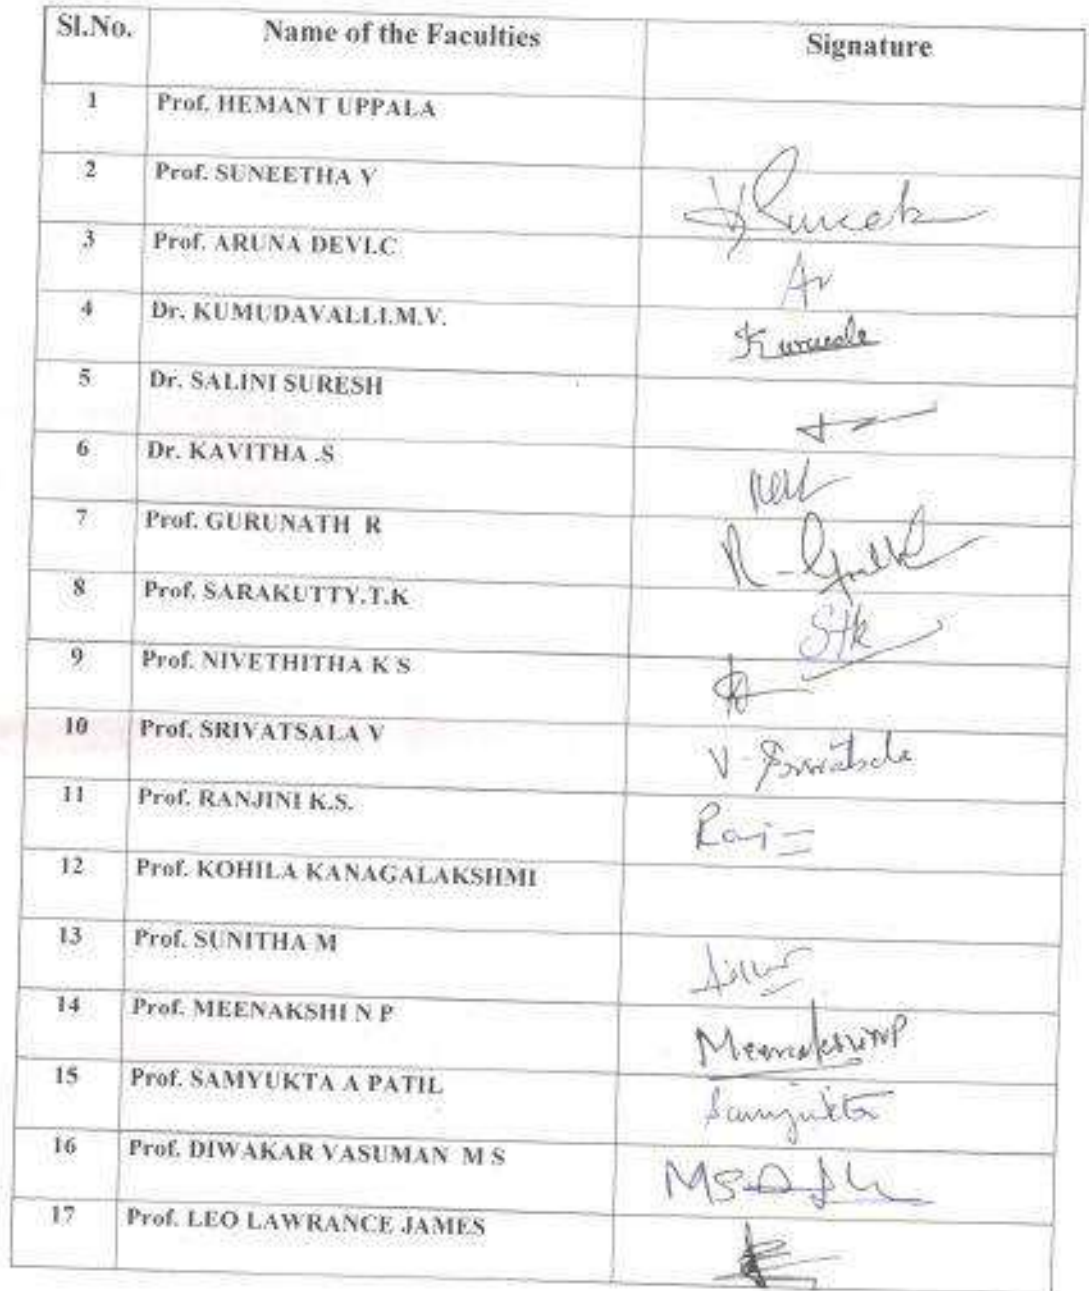 Sl.No. Name of the Faculties Signature
1 Prof. HEMANT UPPALA
2 Prof. SUNEETHA V
3 Prof. ARUNA DEVI.C Ar
4 Dr. KUMUDAVALLI.M.V.
5 Dr. SALINI SURESH
6 Dr. KAVITHA .S
7 Prof. GURUNATH R
8 Prof. SARAKUTTY.T.K Stk
9 Prof. NIVETHITHA K S
10 Prof. SRIVATSALA V V-Srivatsala
11 Prof. RANJINI K.S.
12 Prof. KOHILA KANAGALAKSHMI
13 Prof. SUNITHA M
14 Prof. MEENAKSHI N P Meenakshi NP
15 Prof. SAMYUKTA A PATIL Samyukta
16 Prof. DIWAKAR VASUMAN M S
17 Prof. LEO LAWRANCE JAMES